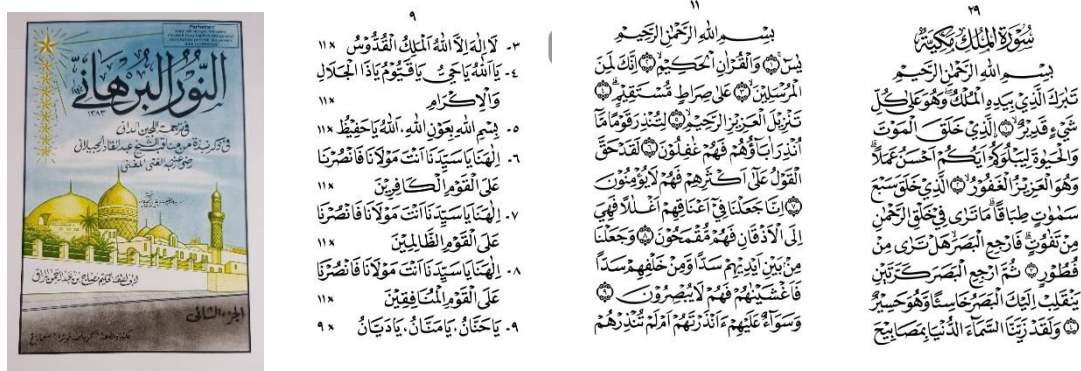 النُّوْرُ الْبُرْهَانِي
١٣٨٣
في ترجمة اللجين الداني
في ذكر نبذة من مناقب الشيخ عبد القادر الجيلاني
الجزء الثاني
٩
٣- لَا إِلٰهَ إِلَّا اللهُ الْمَلِكُ الْقُدُّوْسُ ×١١
٤- يَا اَللهُ يَاحَيُّ يَاقَيُّوْمُ يَاذَا الْجَلَالِ
وَالْإِكْرَامِ ×١١
٥- بِسْمِ اللهِ بِعَوْنِ اللهِ، اَللهُ يَاحَفِيْظُ ×١١
٦- اِلٰهَنَا يَاسَيِّدَنَا اَنْتَ مَوْلَانَا فَانْصُرْنَا
عَلَى الْقَوْمِ الْكَافِرِيْنَ ×١١
٧- اِلٰهَنَا يَاسَيِّدَنَا اَنْتَ مَوْلَانَا فَانْصُرْنَا
عَلَى الْقَوْمِ الظَّالِمِيْنَ ×١١
٨- اِلٰهَنَا يَاسَيِّدَنَا اَنْتَ مَوْلَانَا فَانْصُرْنَا
عَلَى الْقَوْمِ الْمُنَافِقِيْنَ ×١١
٩- يَاحَنَّانُ، يَامَنَّانُ، يَادَيَّانُ ×٩
١١
بِسْمِ اللهِ الرَّحْمٰنِ الرَّحِيْمِ
يٰسٓ ۝١ وَالْقُرْاٰنِ الْحَكِيْمِ ۝٢ اِنَّكَ لَمِنَ
الْمُرْسَلِيْنَ ۝٣ عَلٰى صِرَاطٍ مُّسْتَقِيْمٍ ۝٤
تَنْزِيْلَ الْعَزِيْزِ الرَّحِيْمِ ۝٥ لِتُنْذِرَ قَوْمًا مَّآ
اُنْذِرَ اٰبَآؤُهُمْ فَهُمْ غٰفِلُوْنَ ۝٦ لَقَدْ حَقَّ
الْقَوْلُ عَلٰٓى اَكْثَرِهِمْ فَهُمْ لَا يُؤْمِنُوْنَ
۝٧ اِنَّا جَعَلْنَا فِيْٓ اَعْنَاقِهِمْ اَغْلٰلًا فَهِيَ
اِلَى الْاَذْقَانِ فَهُمْ مُّقْمَحُوْنَ ۝٨ وَجَعَلْنَا
مِنْۢ بَيْنِ اَيْدِيْهِمْ سَدًّا وَّمِنْ خَلْفِهِمْ سَدًّا
فَاَغْشَيْنٰهُمْ فَهُمْ لَا يُبْصِرُوْنَ ۝٩
وَسَوَآءٌ عَلَيْهِمْ ءَاَنْذَرْتَهُمْ اَمْ لَمْ تُنْذِرْهُمْ
٢٩
سُوْرَةُ الْمُلْكِ مَكِّيَّةٌ
بِسْمِ اللهِ الرَّحْمٰنِ الرَّحِيْمِ
تَبٰرَكَ الَّذِيْ بِيَدِهِ الْمُلْكُ وَهُوَ عَلٰى كُلِّ
شَيْءٍ قَدِيْرٌ ۝١ اِلَّذِيْ خَلَقَ الْمَوْتَ
وَالْحَيٰوةَ لِيَبْلُوَكُمْ اَيُّكُمْ اَحْسَنُ عَمَلًا
وَهُوَ الْعَزِيْزُ الْغَفُوْرُ ۝٢ الَّذِيْ خَلَقَ سَبْعَ
سَمٰوٰتٍ طِبَاقًا مَا تَرٰى فِيْ خَلْقِ الرَّحْمٰنِ
مِنْ تَفٰوُتٍ فَارْجِعِ الْبَصَرَ هَلْ تَرٰى مِنْ
فُطُوْرٍ ۝٣ ثُمَّ ارْجِعِ الْبَصَرَ كَرَّتَيْنِ
يَنْقَلِبْ اِلَيْكَ الْبَصَرُ خَاسِئًا وَّهُوَ حَسِيْرٌ
۝٤ وَلَقَدْ زَيَّنَّا السَّمَآءَ الدُّنْيَا بِمَصَابِيْحَ